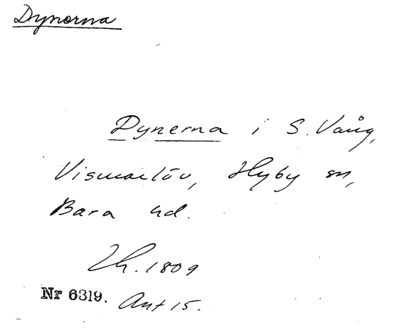 Dynorna
Dynerna i S. Vång,
Vismarlöv, Hyby sn,
Bara hd.
Lh. 1809
Nr 6319. Ant 15.